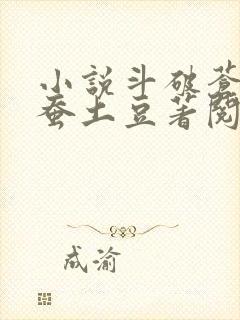 小說斗破蒼
蚕土豆著閱
成渝